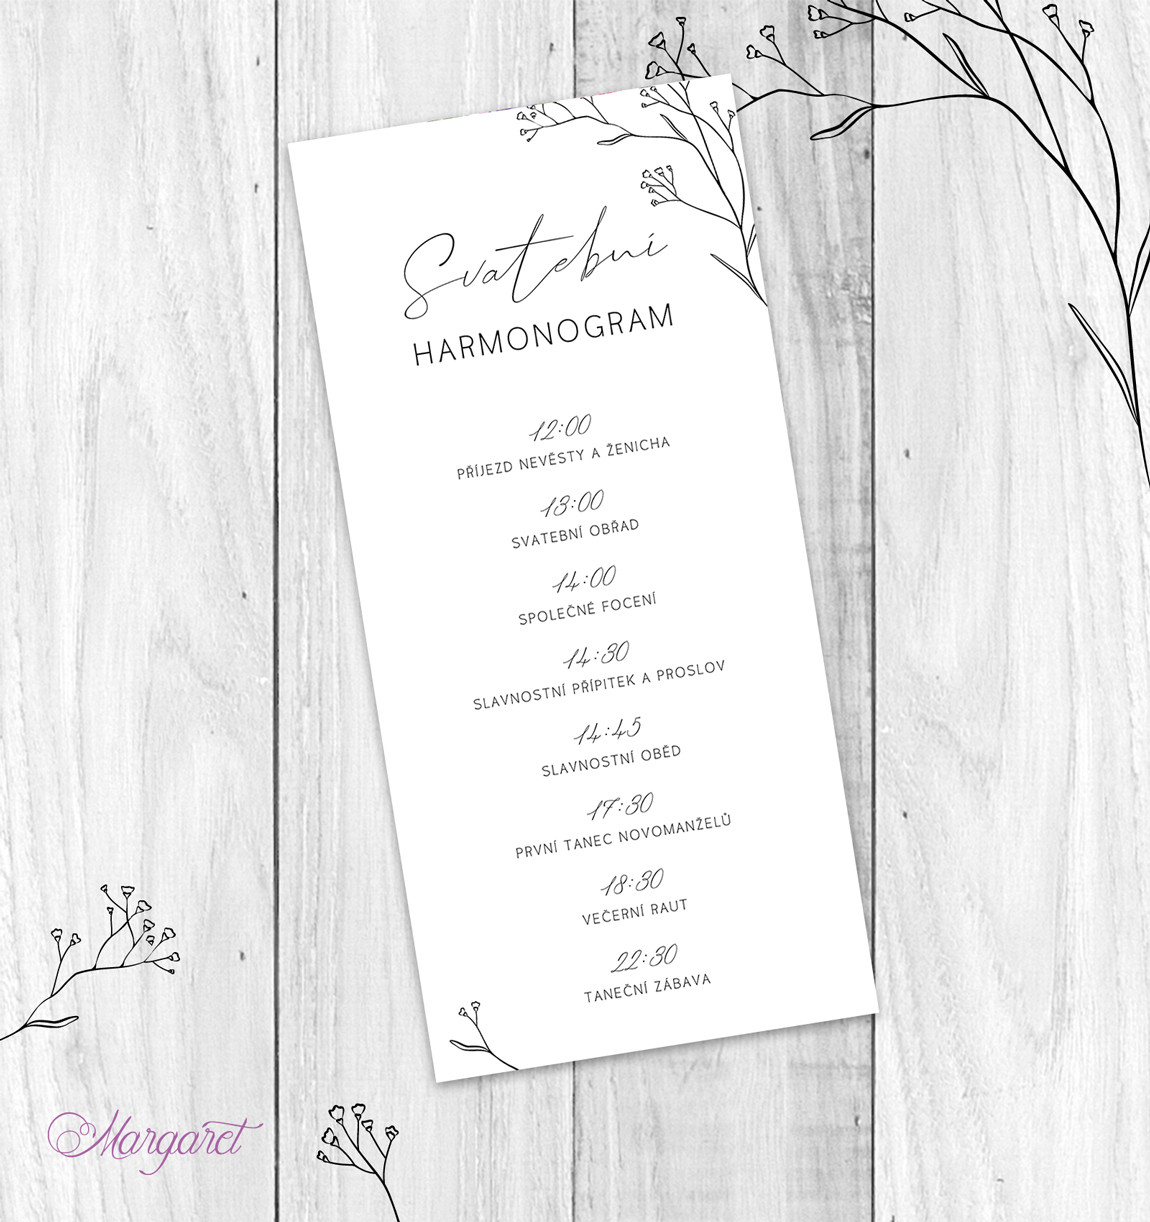 Svatební
HARMONOGRAM
12:00
PŘÍJEZD NEVĚSTY A ŽENICHA
13:00
SVATEBNÍ OBŘAD
14:00
SPOLEČNÉ FOCENÍ
14:30
SLAVNOSTNÍ PŘÍPITEK A PROSLOV
14:45
SLAVNOSTNÍ OBĚD
17:30
PRVNÍ TANEC NOVOMANŽELŮ
18:30
VEČERNÍ RAUT
22:30
TANEČNÍ ZÁBAVA
Margaret